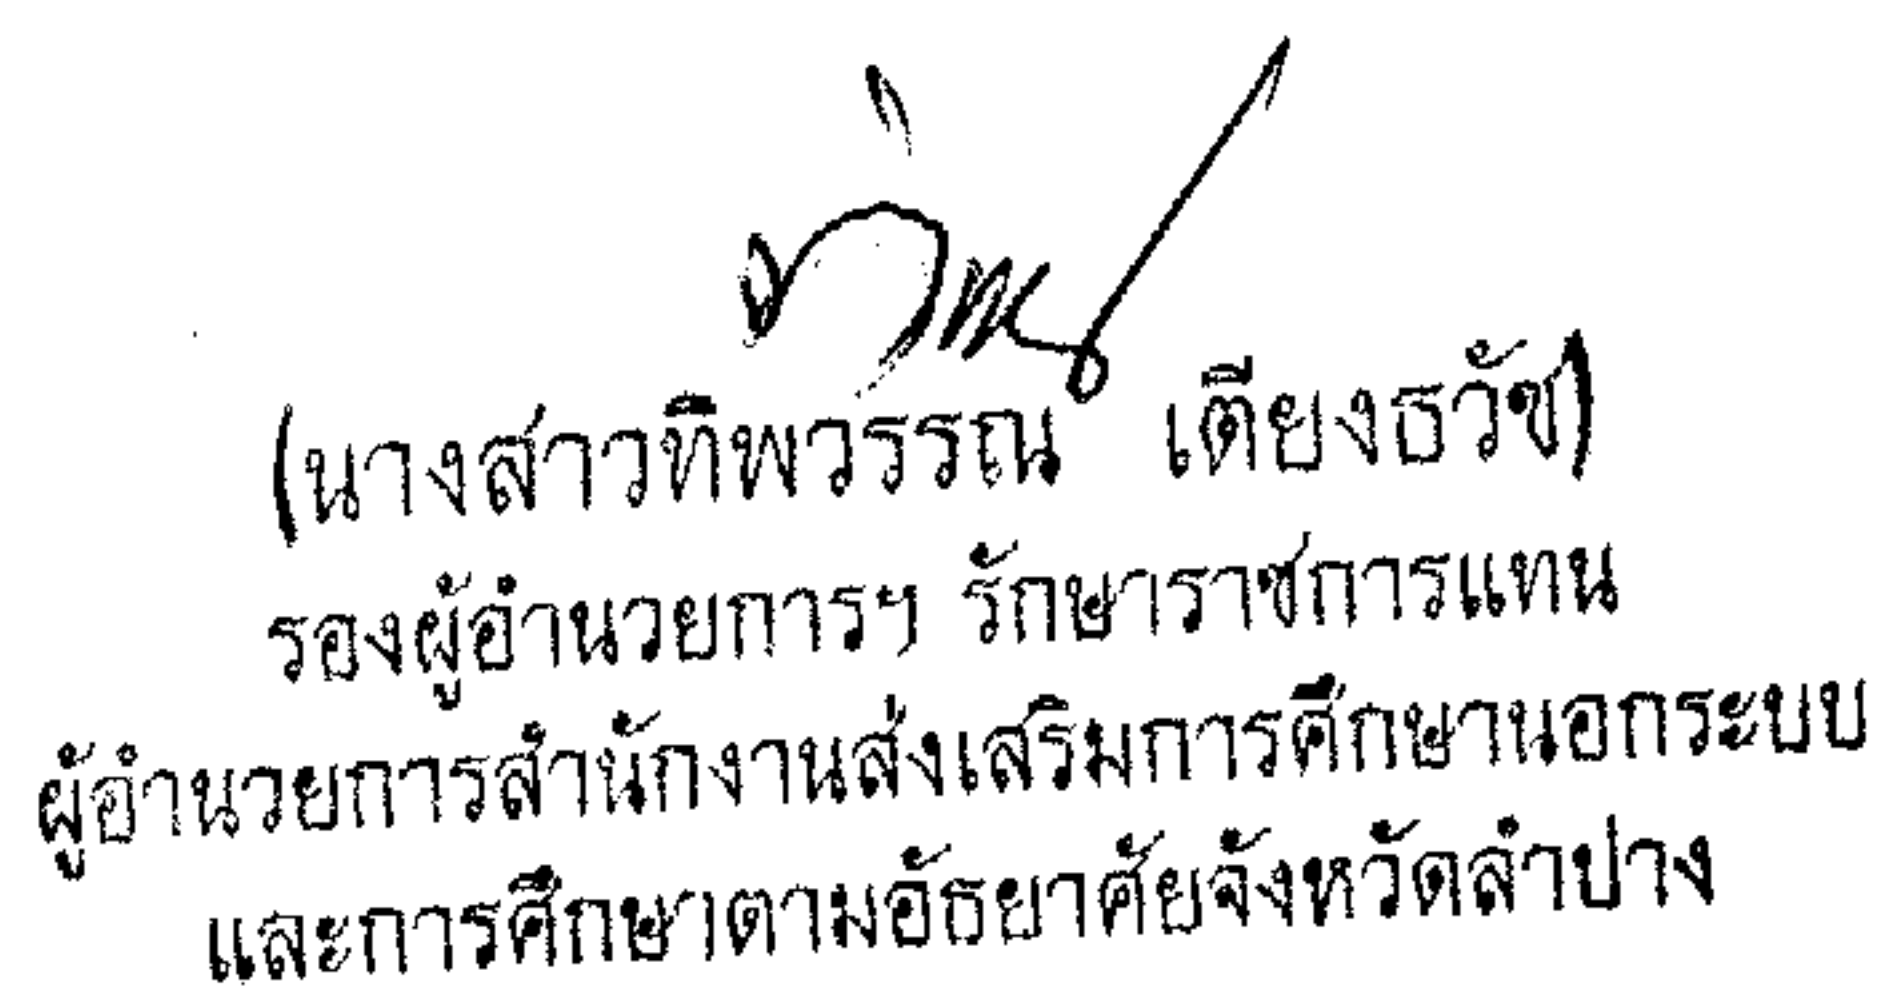 (นางสาวทิพวรรณ เตียงธวัช)
รองผู้อำนวยการฯ รักษาราชการแทน
ผู้อำนวยการสำนักงานส่งเสริมการศึกษานอกระบบ
และการศึกษาตามอัธยาศัยจังหวัดลำปาง